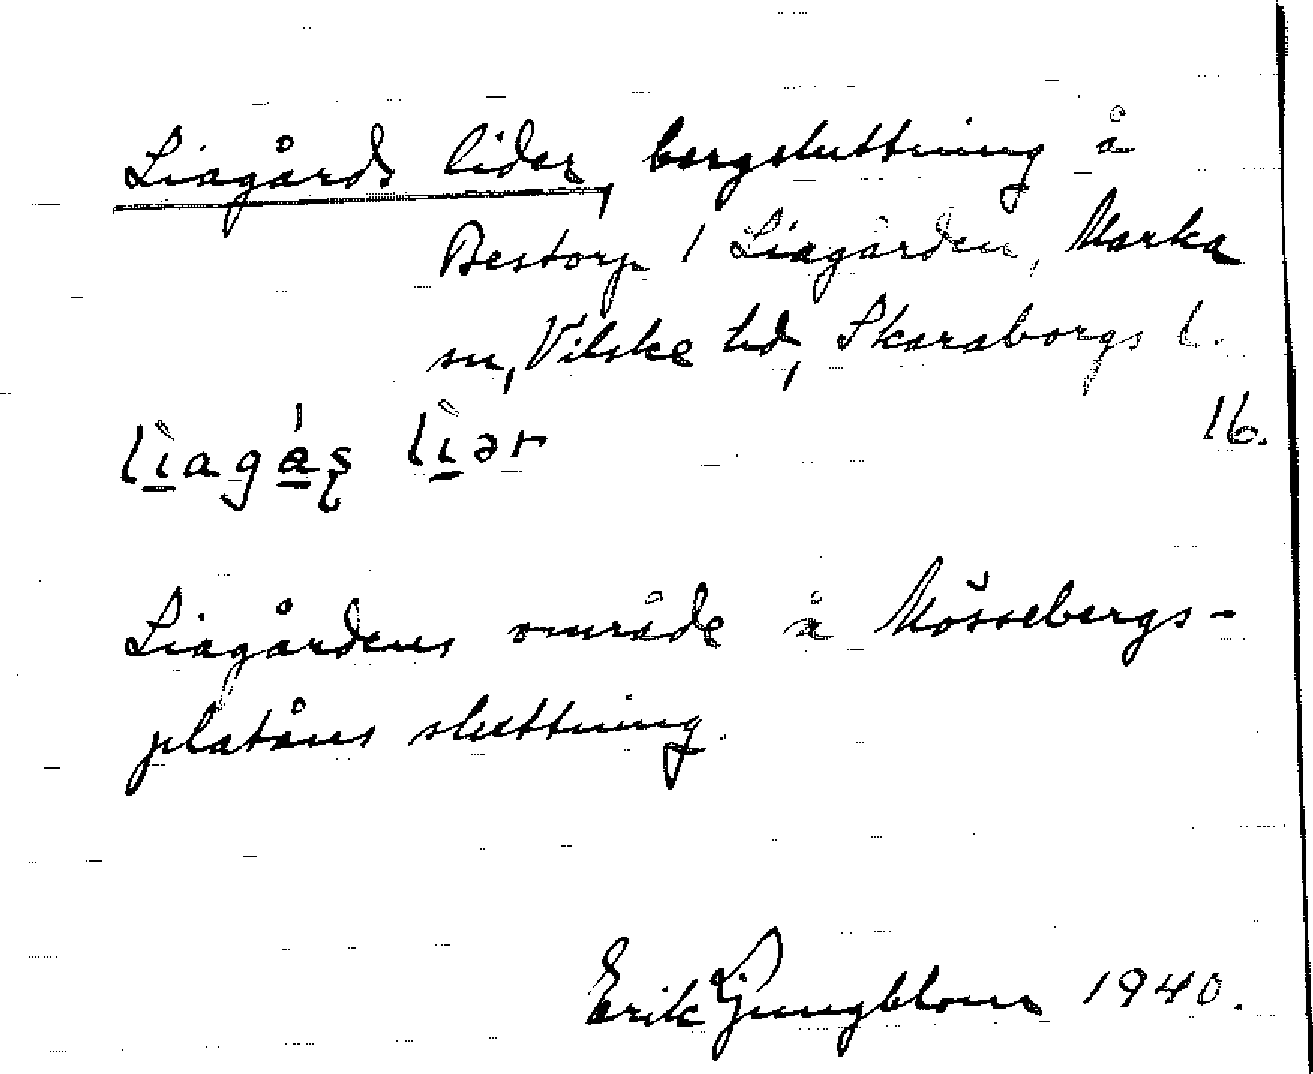 Liagårds lider, bergsluttning å
Bestorp 1 Liagården, Marka
sn, Vilske hd, Skaraborgs l.
16.
lìagás̨ lìər
Liagårdens område å Mössebergs-
platåns sluttning.
Erik Ljungblom 1940.